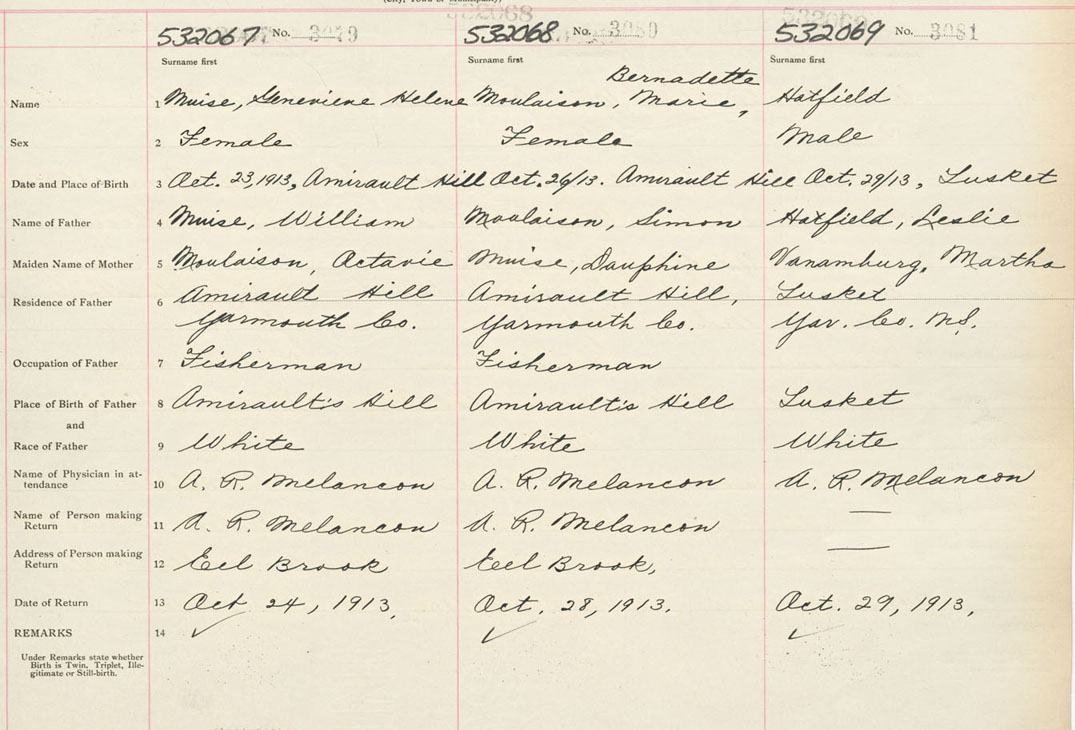 (City, Town or Municipality)
532067 No. 3079 532068 No. 3080 532069 No. 3081
Surname first Surname first Surname first
Bernadette
Name 1 Muise, Genevieve Helene Moulaison, Marie, Hatfield
Sex 2 Female Female Male
Date and Place of Birth 3 Oct. 23, 1913, Amirault Hill Oct. 26/13. Amirault Hill Oct. 29/13, Tusket
Name of Father 4 Muise, William Moulaison, Simon Hatfield, Leslie
Maiden Name of Mother 5 Moulaison, Octavie Muise, Dauphine Vanamburg, Martha
Residence of Father 6 Amirault Hill Amirault Hill, Tusket
Yarmouth Co. Yarmouth Co. Yar. Co. N.S.
Occupation of Father 7 Fisherman Fisherman
Place of Birth of Father 8 Amirault's Hill Amirault's Hill Tusket
and
Race of Father 9 White White White
Name of Physician in at-
tendance 10 A. R. Melancon A. R. Melancon A. R. Melancon
Name of Person making
Return 11 A. R. Melancon A. R. Melancon —
Address of Person making
Return 12 Eel Brook Eel Brook, —
Date of Return 13 Oct 24, 1913. Oct. 28, 1913. Oct. 29, 1913.
REMARKS 14 ✓ ✓ ✓
Under Remarks state whether
Birth is Twin, Triplet, Ille-
gitimate or Still-birth.